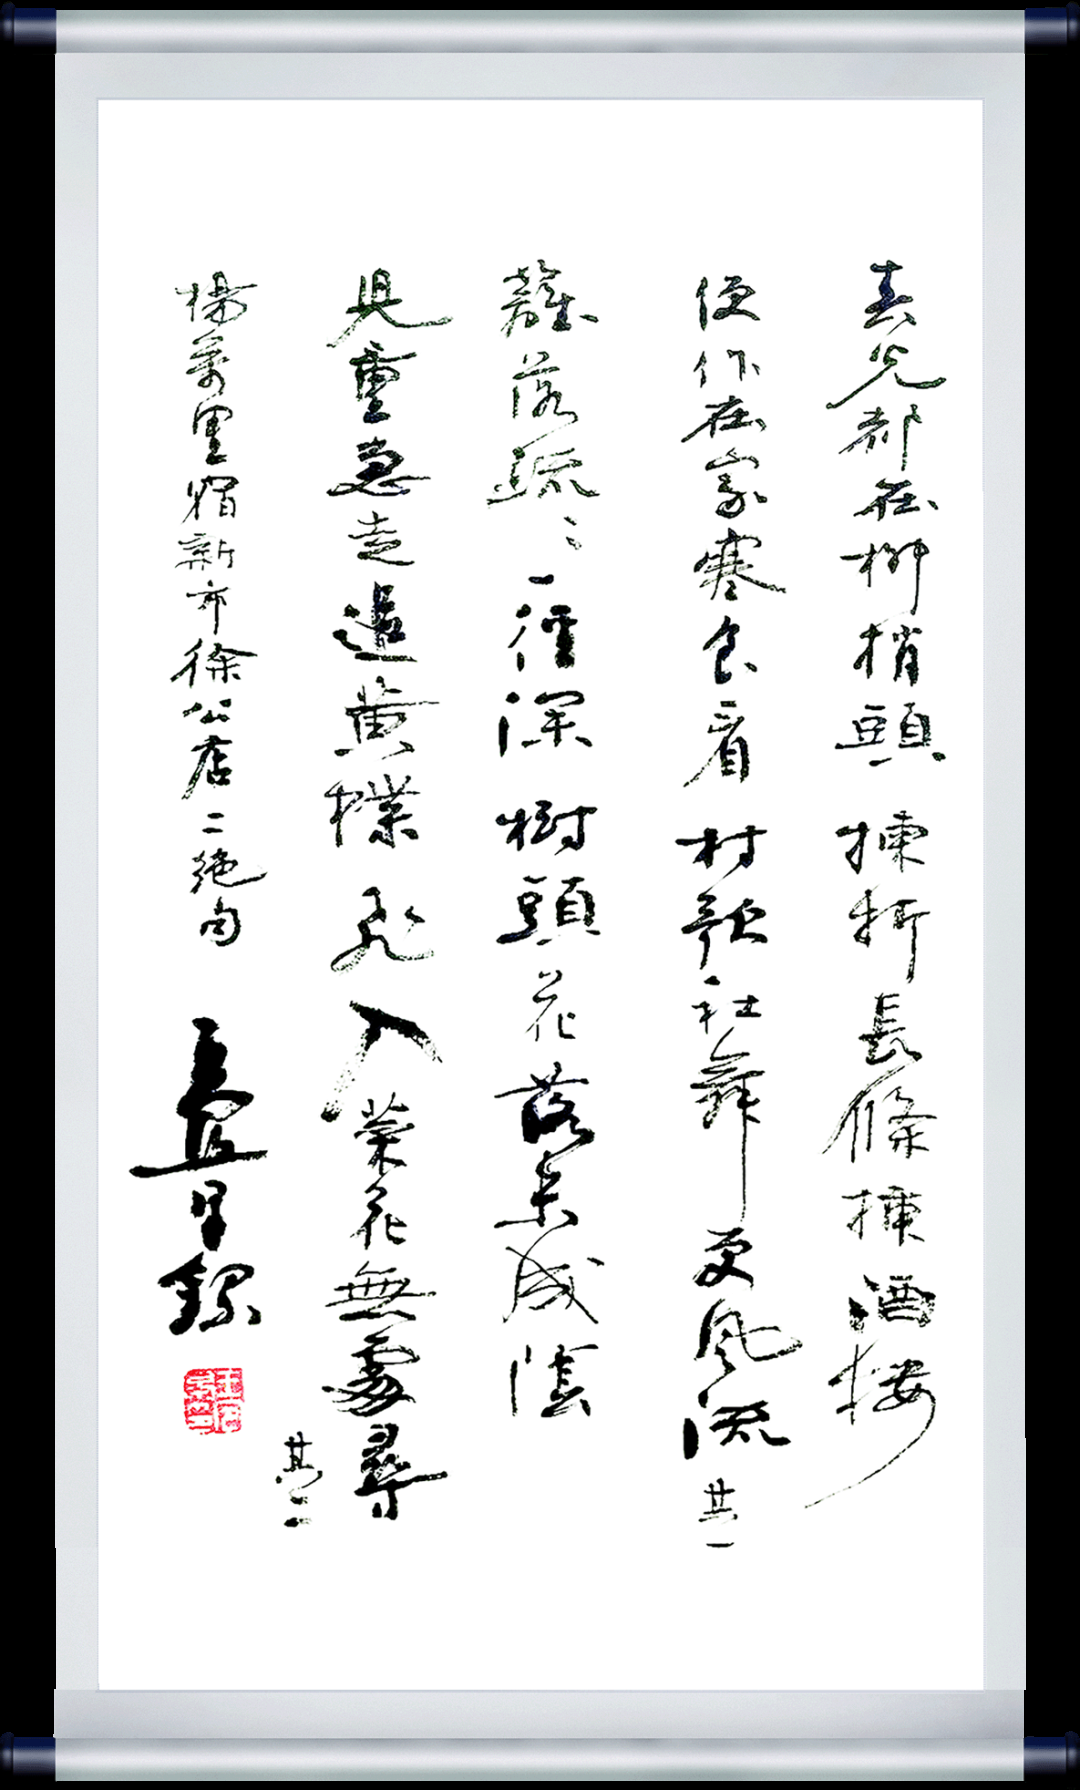 春光都在柳梢頭揀折長條插酒樓
便作在家寒食看村歌社舞更風流 其一
籬落疏〻一徑深樹頭花落未成陰
兒童急走追黃蝶飛入菜花無處尋
其二
楊萬里宿新市徐公店二絕句 錄